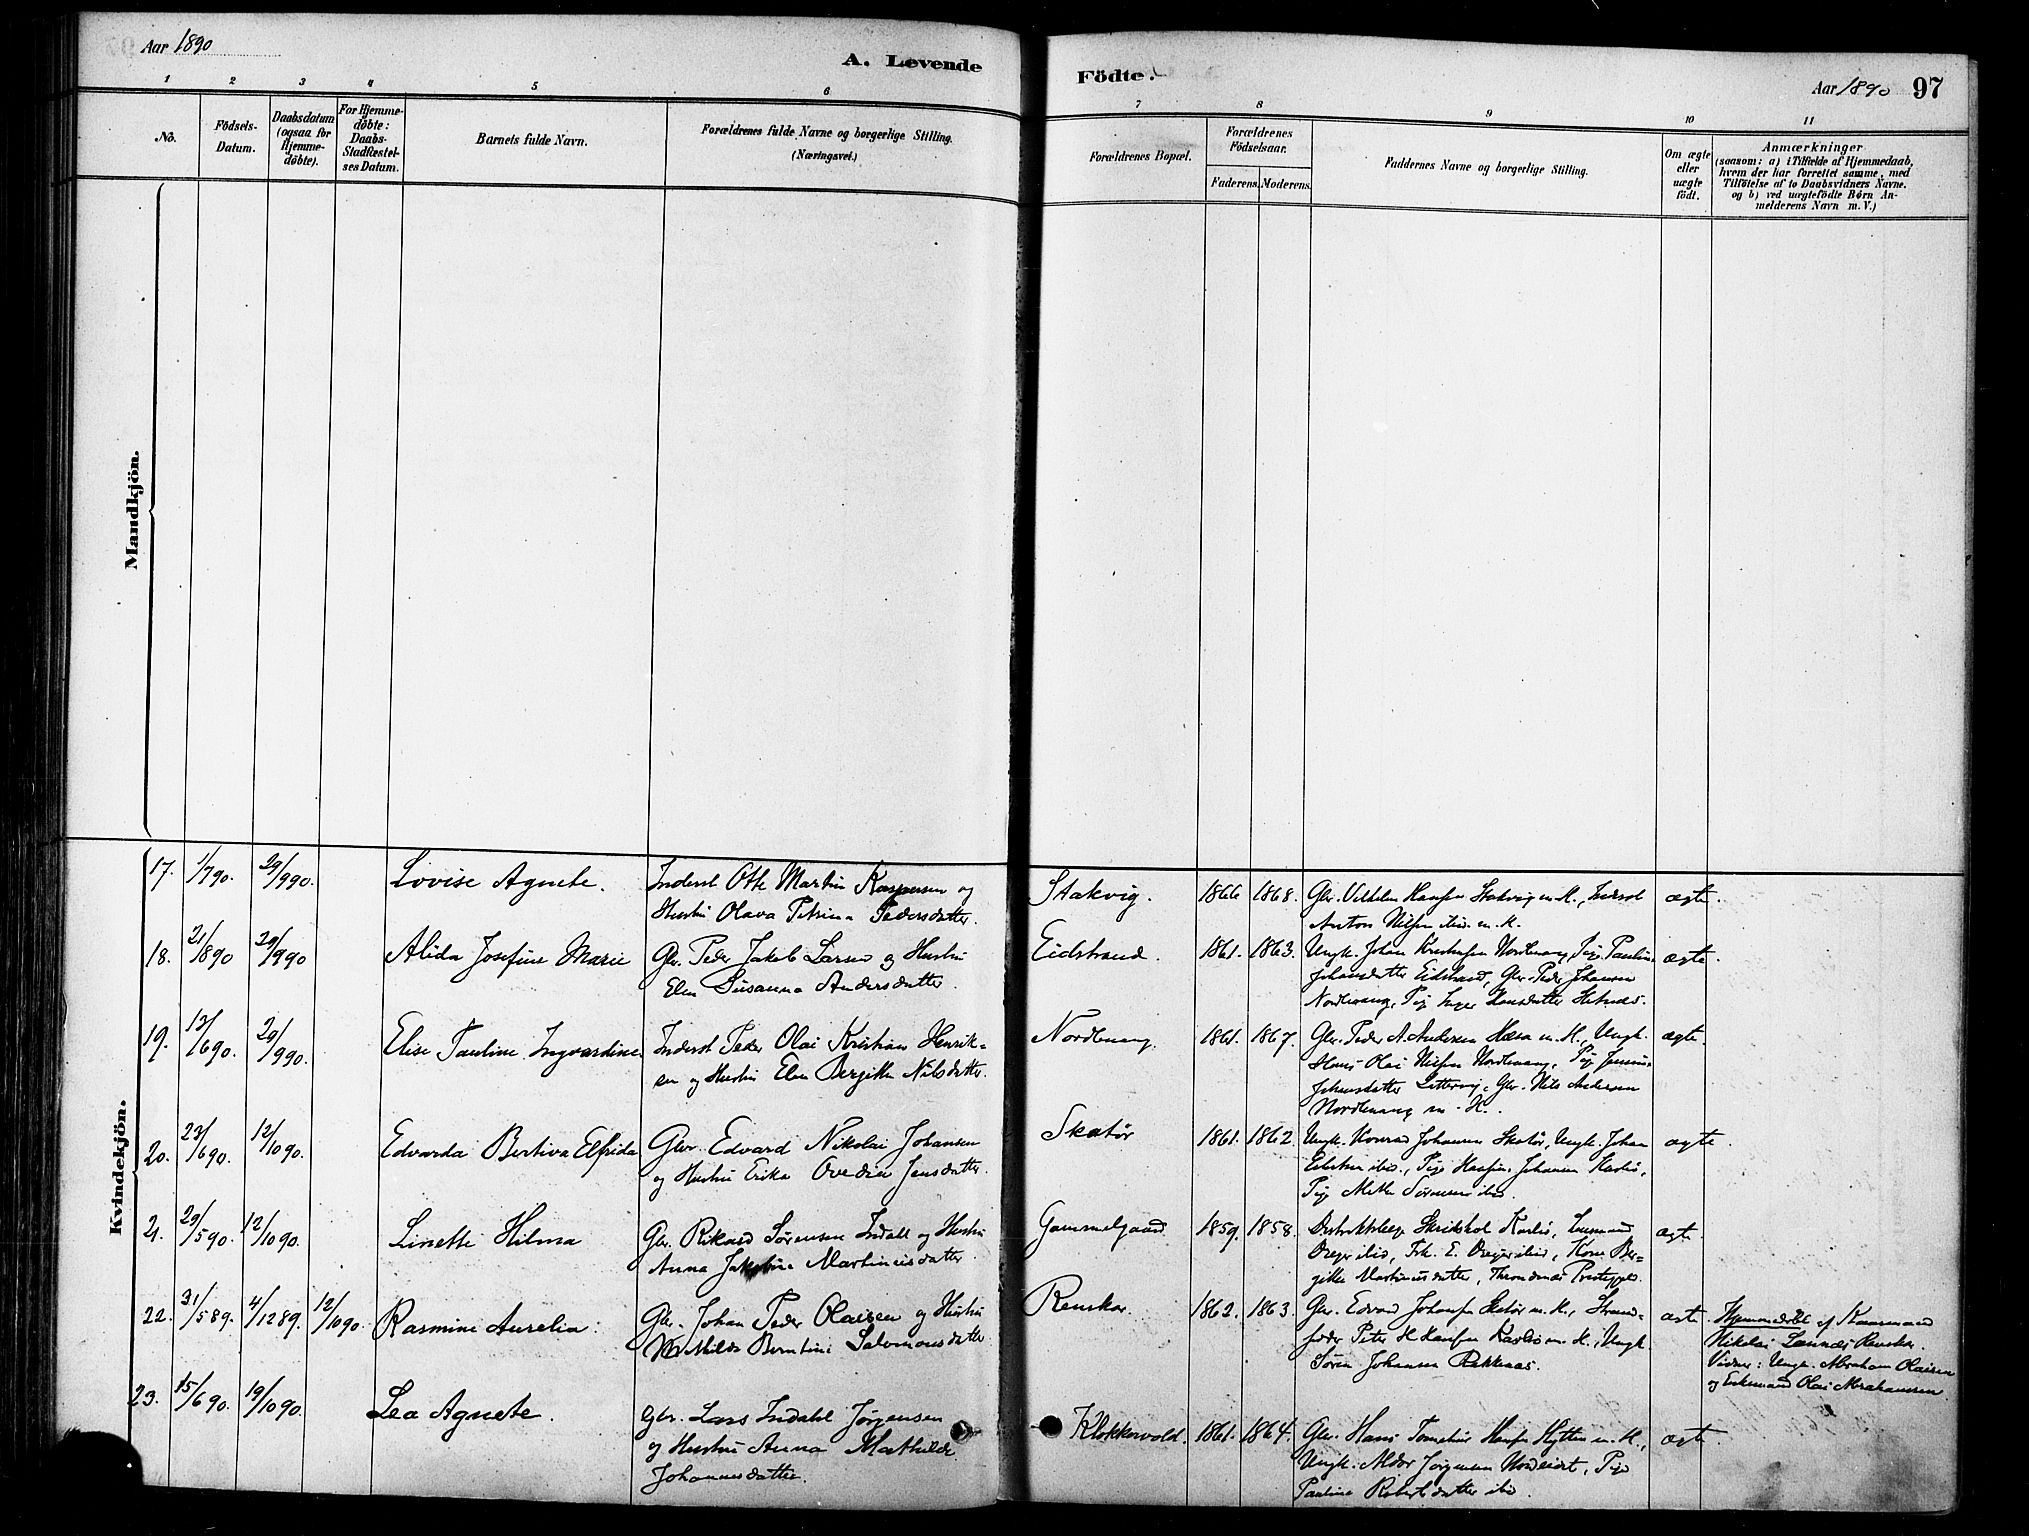 Aar 1890
A. Levende
Födte.
Aar 1890 97
1 2 3 4 5 6
7 8 9 10 11
No.
Födsels-
Datum.
Daabsdatum
(ogsaa for
Hjemme-
döbte).
For Hjemme-
döbte:
Daabs-
Stadfæstel-
ses Datum.
Barnets fulde Navn.
Forældrenes fulde Navne og borgerlige Stilling.
(Næringsvei.)
Forældrenes Bopæl.
Forældrenes
Födselsaar.
Faderens. Moderens.
Faddernes Navne og borgerlige Stilling.
Om ægte
eller
uægte
födt.
Anmærkninger
(saasom: a) i Tilfælde af Hjemmedaab,
hvem der har forrettet samme, med
Tilföielse af to Daabsvidners Navne.
og b) ved uægtefödte Börn An-
melderens Navn m. V.)
Mandkjön.
Kvindekjön.
17. 1/7 90. 29/9 90. Lovise Agnete. Inderst Otto Martin Kaspersen og
Hustru Olava Petrina Pedersdatter.
Stakvig. 1866 1868. Gbr. Vilhelm Hansen Stakvig m. H., Inderst
Anton Nilsen ibid. m. H.
ægte.
18. 21/8 90 29/9 90 Alida Josefine Marie Gbr. Peder Jakob Larsen og Hustru
Elen Susanna Andersdatter.
Eidstrand. 1861. 1863. Ungk. Johan Nordlenang, Pige Pauline
Johansdatter Eidstrand, Gbr. Peder Johansen
Nordlenang, Pige Inger Hansdatter
ægte.
19. 13/6 90. 29/9 90. Elise Pauline Ingvardine Inderst Peder Olai Kristian Henrik-
sen og Hustru Elen Bergitte Nilsdatter.
Nordlenang. 1861. 1867. Gbr. Peder A. Andersen m. H., Ungk.
Hans Olai Nilsen Nordlenang, Pige
Johansdatter Gbr. Nils Andersen
Nordlenang m. H.
ægte.
20. 23/6 90. 12/10 90. Edvarda Bertiva Elfrida Gbr. Edvard Nikolai Johansen
og Hustru Erika Ovedia Jensdatter.
Skatør 1861. 1862. Ungk. Konrad Johansen Skatør, Ungk. Johan
ibid., Pige Johansen
Pige Mette Sørensen ibid.
ægte.
21. 29/5 90. 12/10 90. Linette Hilma Gbr. Rikard Sørensen Indahl og Hustru
Anna Jakobine Martinusdatter.
Gammelgaard 1859. 1858. Karlsø,
Dreyer ibid, Frk. E. Dreyer ibid, Kone Ber-
gitte Martinusdatter, Throndenæs Prestegjeld.
ægte.
22. 31/5 89. 4/12 89. 12/10 90. Rasmine Aurelia. Gbr. Johan Peder Olaisen og Hustru
Mathilde Berntine Salomonsdatter
Renskar. 1862. 1863. Gbr. Edvard Johansen Skatør m. H., Strand-
sidder Peter H. Hansen Karlsø m. H., Ungk.
Søren Johansen Rekkenæs.
ægte Hjemmedøbt af
Nikolai Renskar.
Vidner: Ungk. Abraham Olaisen
og Enkemand Olai Abrahamsen.
23. 15/6 90. 19/10 90. Lea Agnete. Gbr. Lars Indahl Jørgensen
og Hustru Anna Mathilde
Johannesdatter.
Klokkervold. 1861. 1864. Gbr. Hans Hansen Hytten m. H.,
Ungk. Aldor Jørgensen Nordeidet, Pige
Pauline Robertsdatter ibid.
ægte.